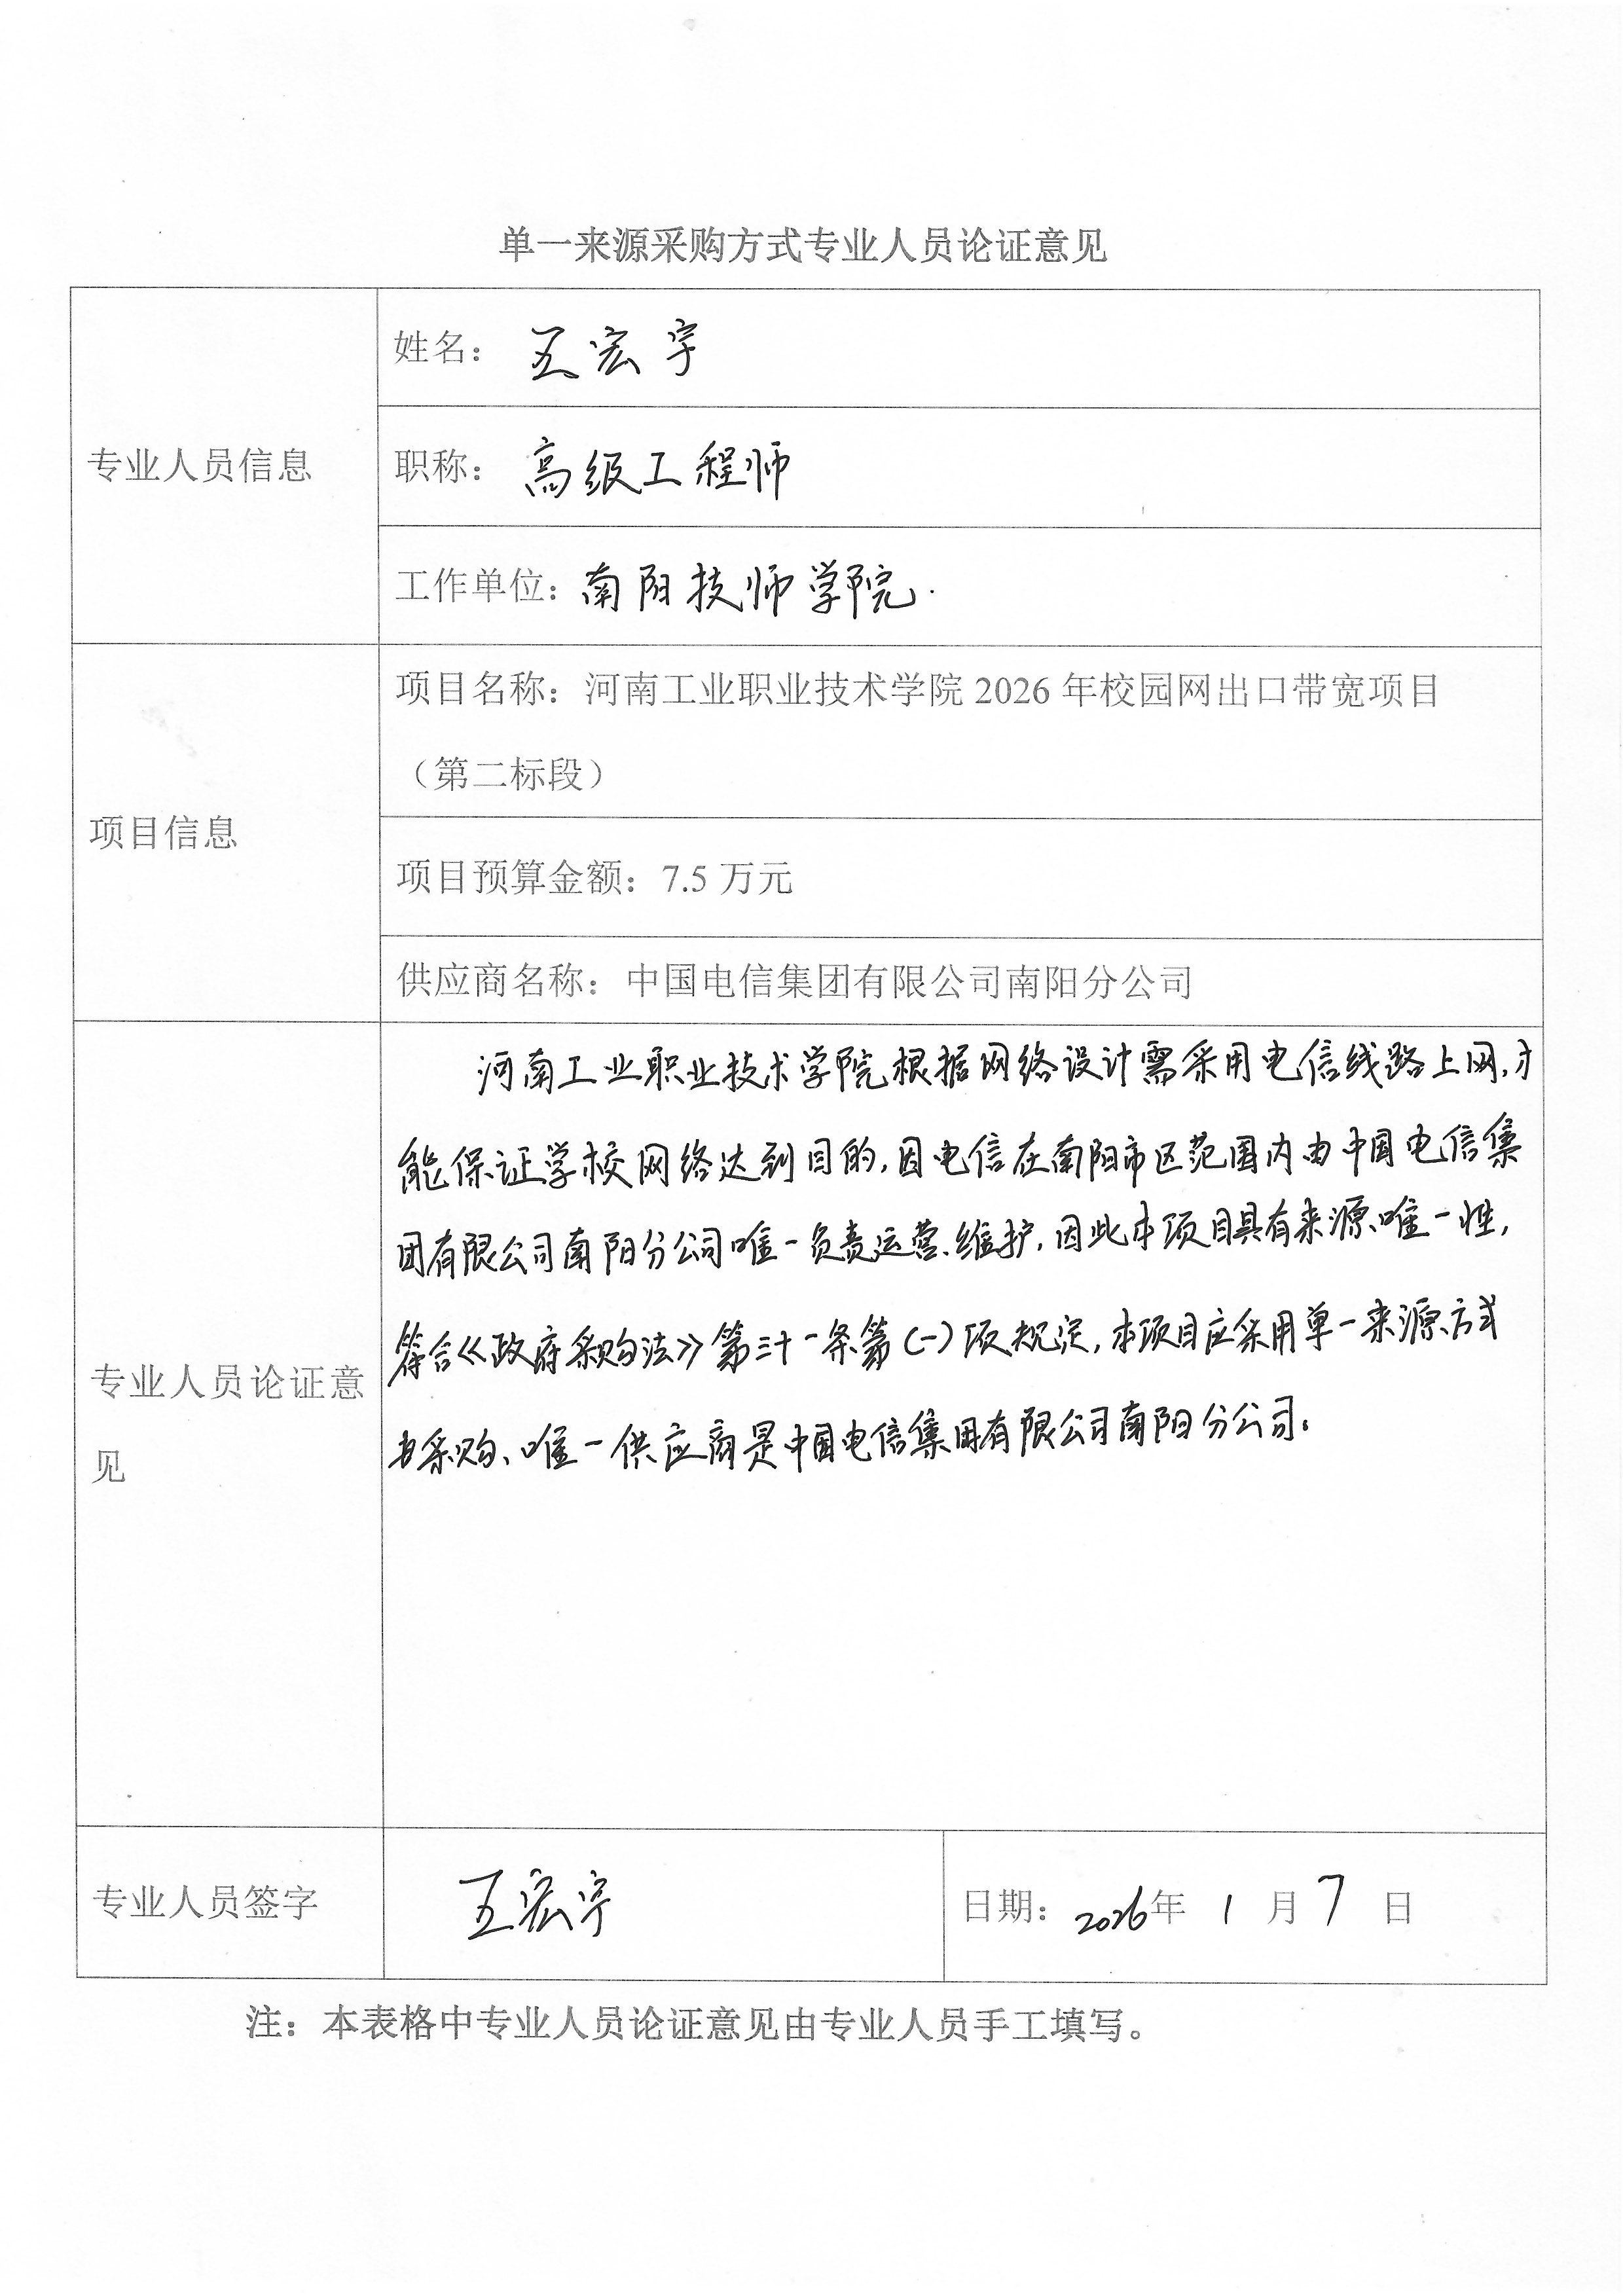 单一来源采购方式专业人员论证意见
专业人员信息
姓名：王宏宇
职称：高级工程师
工作单位：南阳技师学院.
项目信息
项目名称：河南工业职业技术学院 2026 年校园网出口带宽项目
（第二标段）
项目预算金额：7.5 万元
供应商名称：中国电信集团有限公司南阳分公司
专业人员论证意
见
河南工业职业技术学院根据网络设计需采用电信线路上网,才
能保证学校网络达到目的,因电信在南阳市区范围内由中国电信集
团有限公司南阳分公司唯一负责运营、维护,因此本项目具有来源唯一性,
符合《政府采购法》第三十一条第(一)项规定,本项目应采用单一来源方式
采购、唯一供应商是中国电信集团有限公司南阳分公司。
专业人员签字
王宏宇
日期：2026年 1 月 7 日
注：本表格中专业人员论证意见由专业人员手工填写。